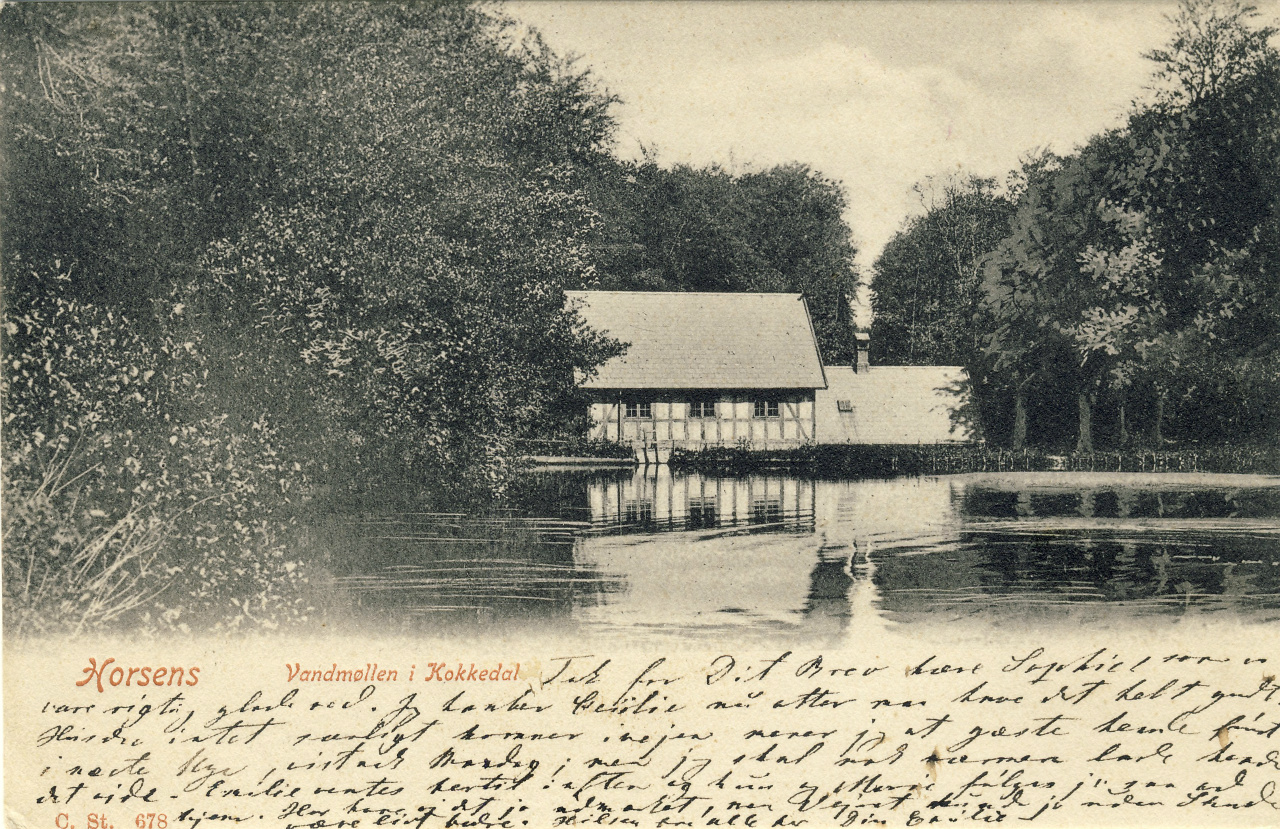 Horsens Vandmøllen i Kokkedal Tak for Dit Brev kære Sophie, som vi
vare rigtig glade ved. Jg tænker Cecilie nu atter maa have det helt godt
Hvis der intet særligt kommer i vejen mener jg at gæste hende først
i næste Uge, vistnok Mandag; men jg skal nok nærmere lade hende
det vide. Emilie ventes hertil i aften og hun og Marie følges jo saa ad
hjem. Her have vi det jo udmærket, var Vejret kun jo uden Skade
være lidt bedre. Hilsen fra alle her Din Emilie
C. St. 678